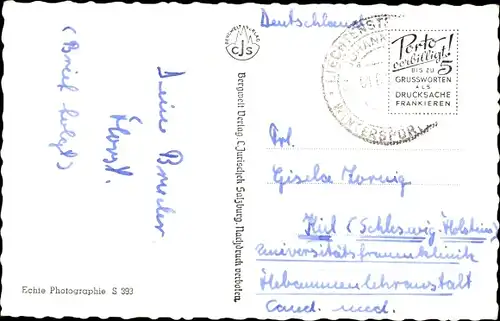 (Brief folgt)
Deine Bruder
Horst.
Echte Photographie S 393
BERGWELT-VERLAG
CJS
Bergwelt Verlag, C. Jurischek Salzburg. Nachdruck verboten.
Deutschland
LIECHTENSTEIN
WINTERSPORT
Porto
verbilligt!
BIS ZU 5
GRUSSWORTEN
ALS
DRUCKSACHE
FRANKIEREN
Frl.
Gisela Hornig
Kiel (Schleswig-Holstein)
Universitätsfrauenklinik
Hebammenlehranstalt
Cand. med.